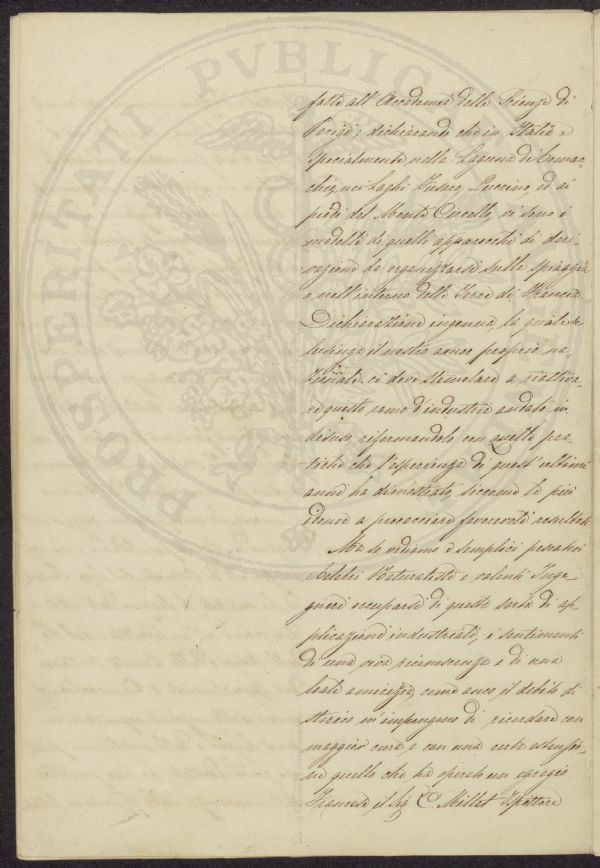 fatta all'Accademia delle Scienze di
Parigi; dichiarando che in Italia e
specialmente nella Laguna di Comac-
chio, nei Laghi Fusaro, Lucrino, ed ai
piedi del Monte Circello, vi sono i
modelli di quelli apparecchi di deri-
vazione da organizzarsi sulle spiaggie
e nell'interno delle Terre di Francia.
Dichiarazione ingenua la quale se
lusinga il nostro amor proprio na-
zionale ci deve stimolare a riattiva-
re questo ramo d'industria andato in
disuso, riformandolo con quelle pra-
tiche che l'esperienza di quest'ultimi
anni ha dimostrato, siccome le più
idonee a procacciare favorevoli resultati.
Ma se vediamo e semplici pescatori
celebri Naturalisti e valenti Inge-
gneri occuparsi di questa sorta di ap-
plicazioni industriali, i sentimenti
di una viva riconoscenza e di una
leale amicizia, come anco il debito di
storico m'impongono di ricordare con
maggior cura e con una certa estensio-
ne quello che ha operato un egregio
Francese il Sig. C. Millet Ispettore
PROSPERITATI PVBLICAE